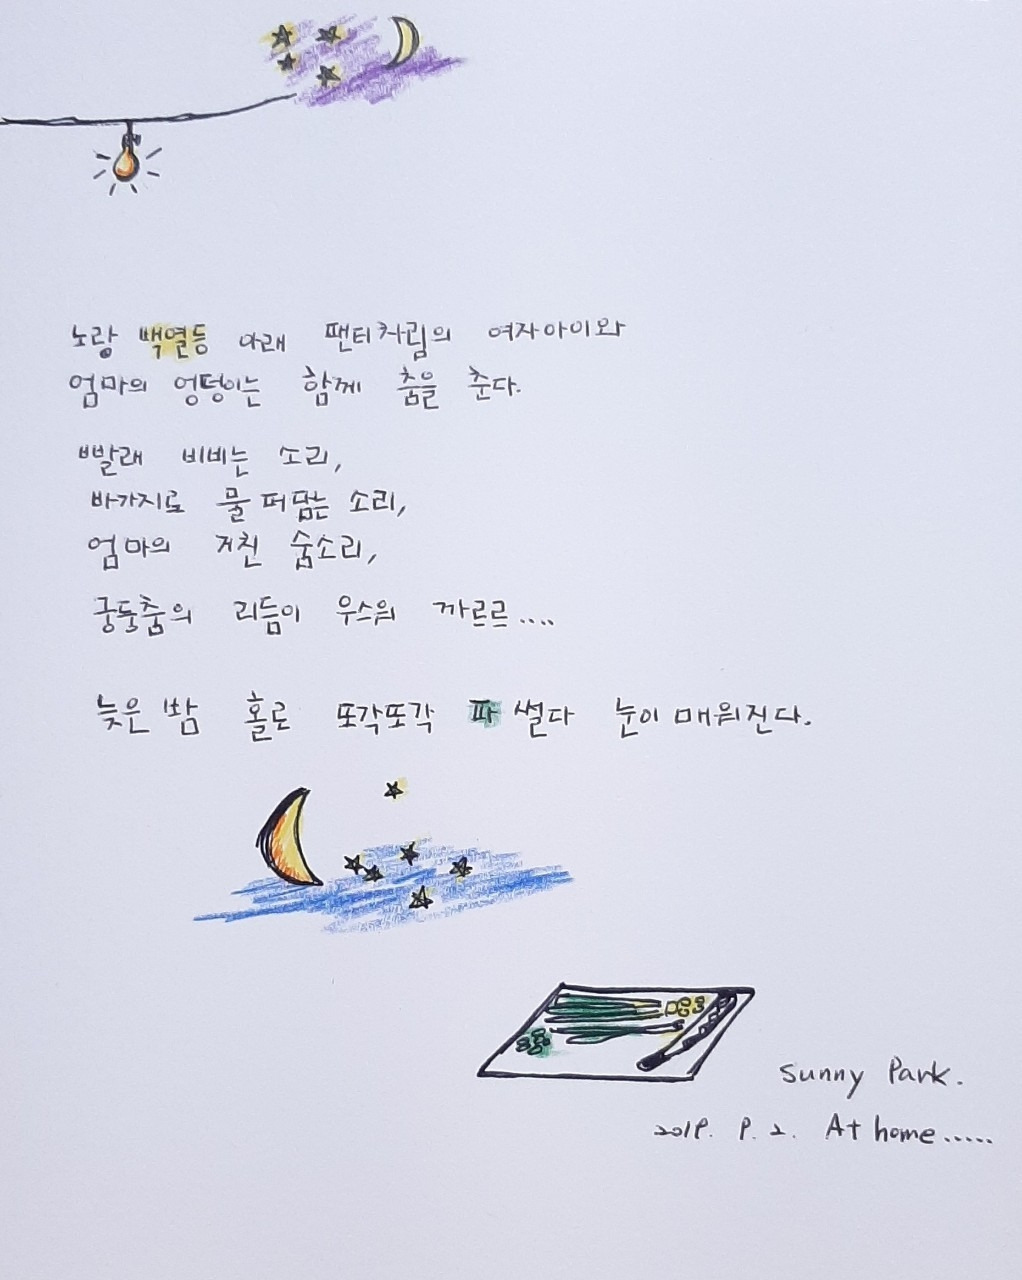 노랑 백열등 아래 팬티차림의 여자아이와
엄마의 엉덩이는 함께 춤을 춘다.
빨래 비비는 소리,
바가지로 물 퍼담는 소리,
엄마의 거친 숨소리,
궁둥춤의 리듬이 우스워 까르르....
늦은 밤 홀로 또각또각 파 썰다 눈이 매워진다.
Sunny Park.
2019. 9. 2. At home.....